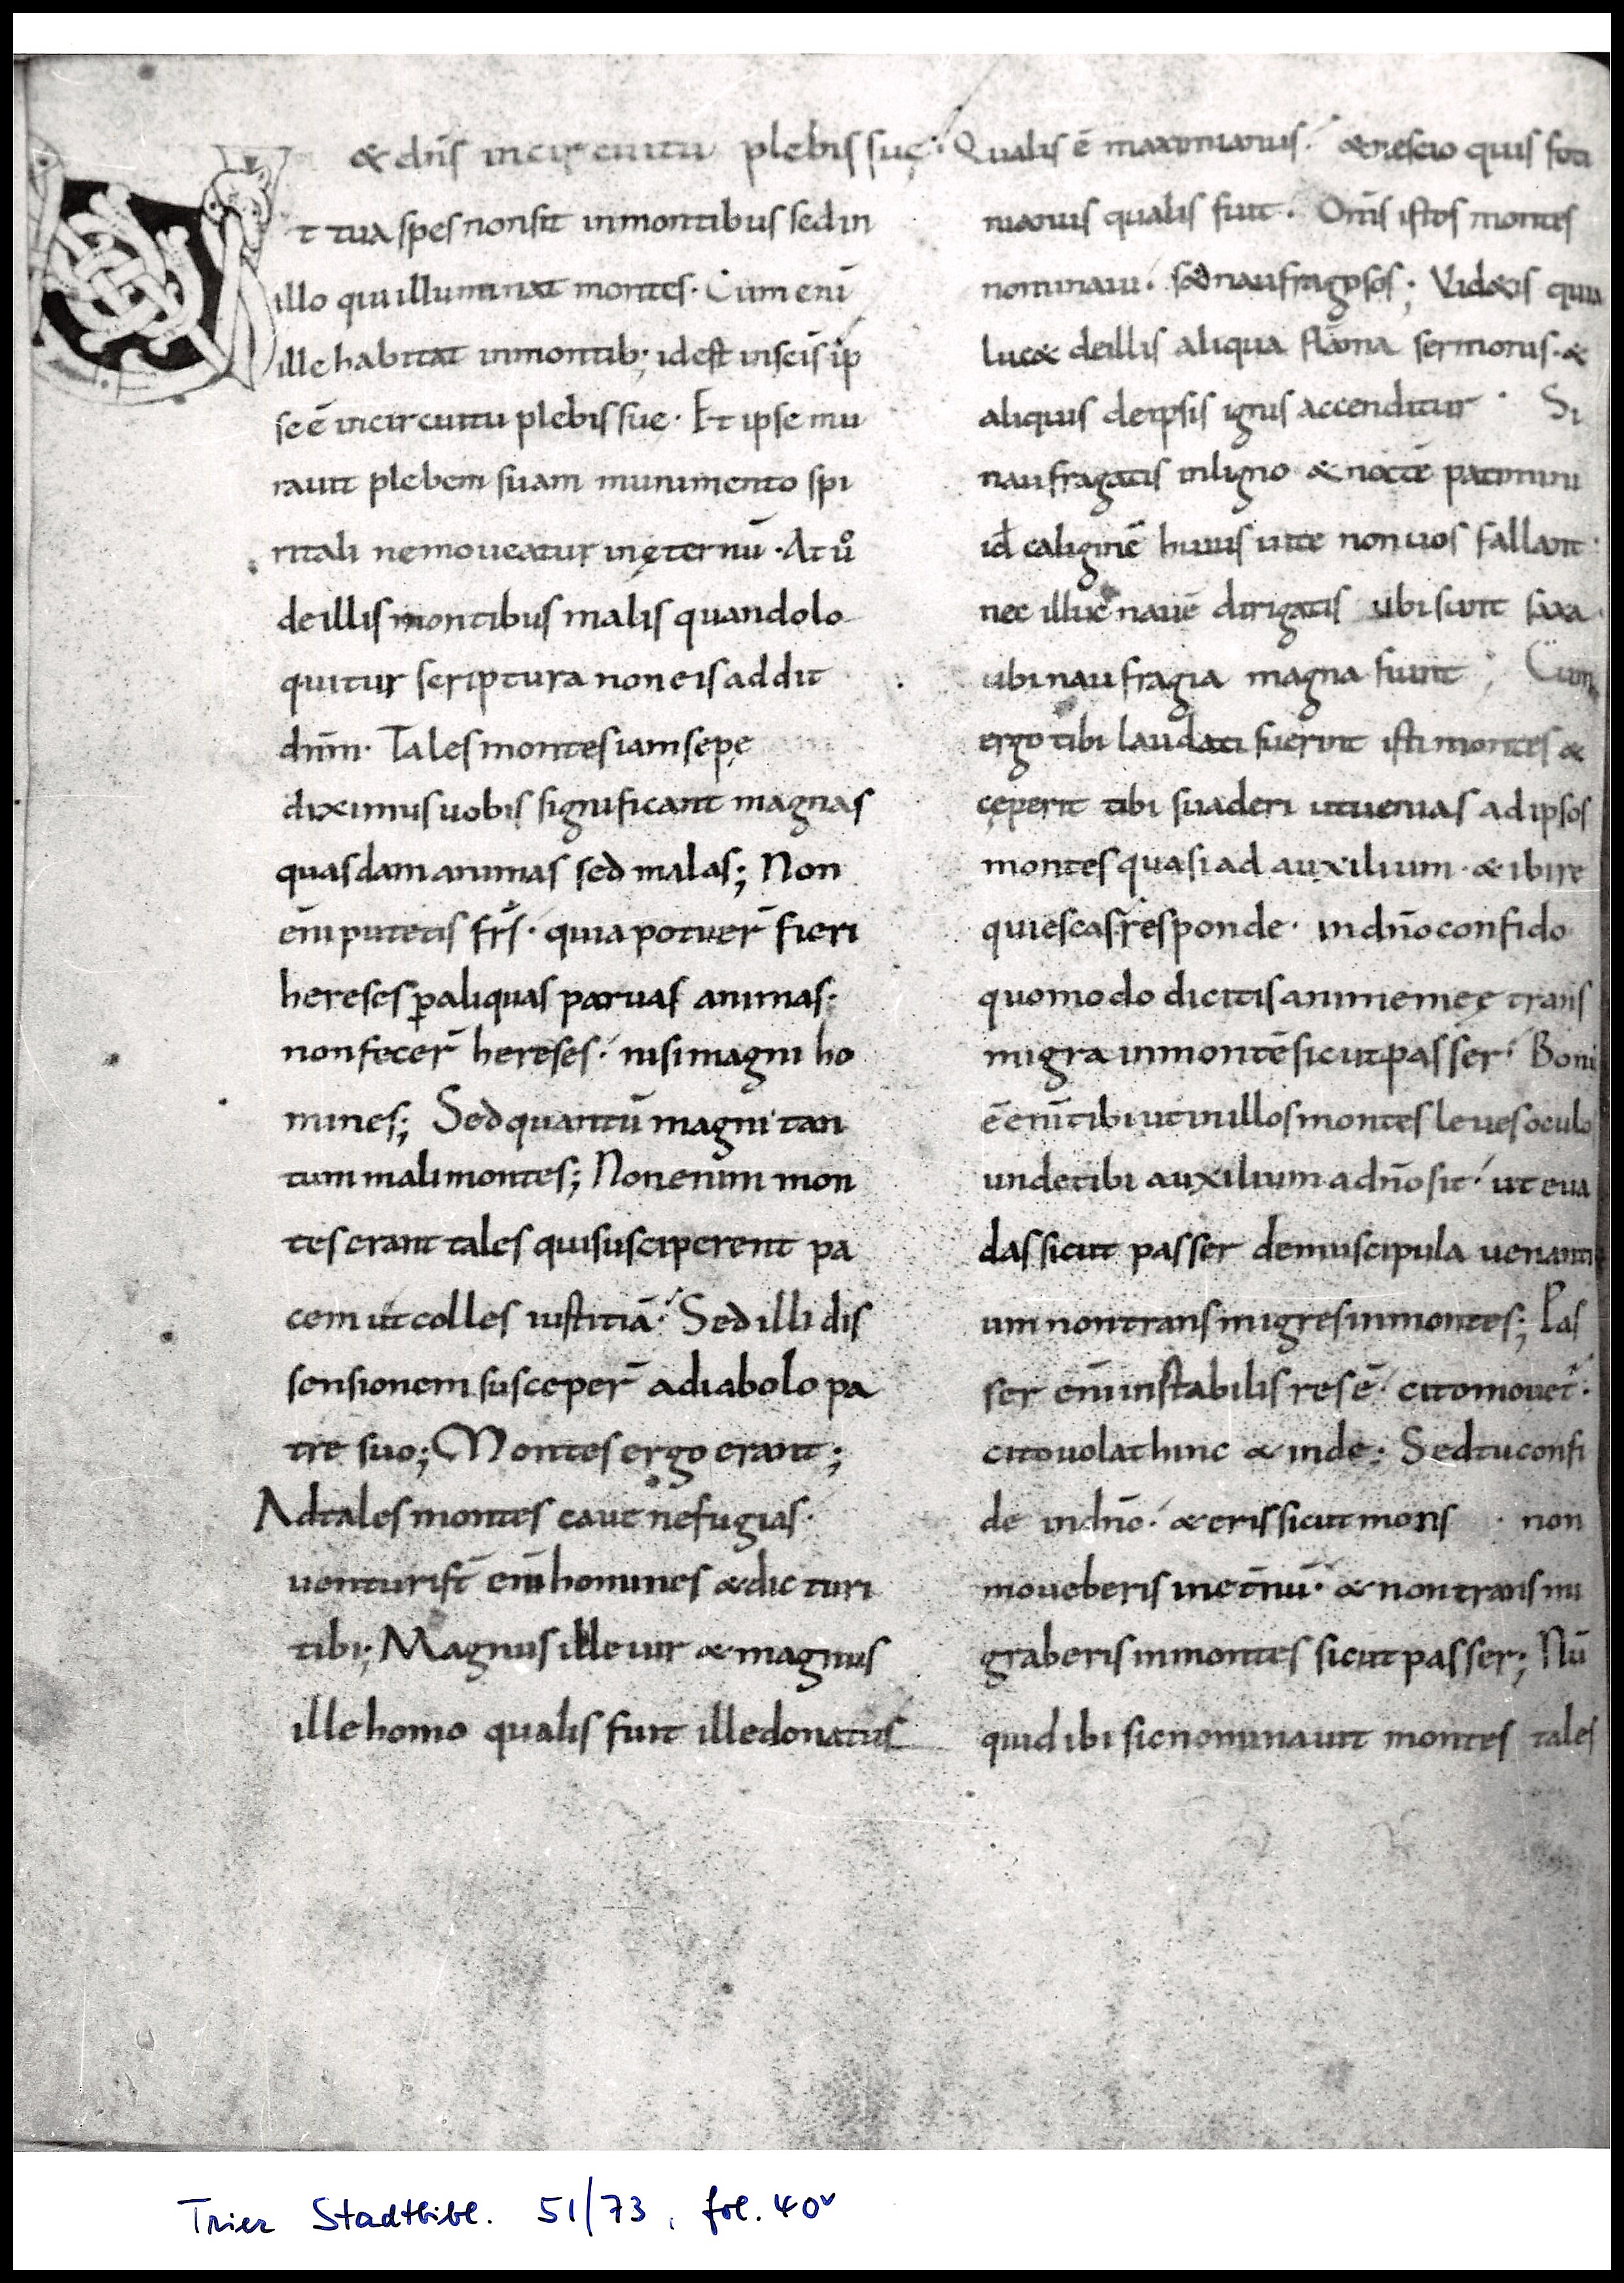 & dn̄s incircuitu plebis suę·
t tua spes nonsit inmontibus sedin
illo quiilluminat montes· Cum enī
ille habitat inmontib; idest inscīs ip
se ē incircuitu plebis sue· Et ipse mu
rauit plebem suam munimento spi
ritali nemoueatur inęternū· At ůͦ
deillis montibus malis quandolo
quitur scriptura noneis addit
dn̄m· Tales montes iamsepę
diximusuobis significant magnas
quasdamanimas sed malas; Non
en̄i putetis fr̄s· quia potuer̄ fieri
hereses ꝑaliquas paruas animas·
nonfecer̄ hereses· nisimagni ho
mines; Sedquantū magni tan
tum malimontes; Nonenim mon
tes erant tales quisusciperent pa
cem ut colles iustitiā· Sed illi dis
sensionem susceper̄ adiabolo pa
tre suo; Montes ergo erant;
Adtales montes caue nefugias·
uenturist̄ en̄i homines & dicturi
tibi; Magnus ille uir & magnus
ille homo qualis fuit illedonatus
Qualis ē maximianus· & nescio quis foti
nianus qualis fuit· Om̄s istos montes
nominaui· sed naufragosos; Vid&is quia
luc& deillis aliqua flāma sermonis· &
aliquis deipsis ignis accenditur· Si
naufragatis inligno & noctē patimini
id̄ caliginē huius uite non uos fallant·
nec illuc nauē dirigatis ubi sunt saxa·
ubi naufragia magna fiunt; Cum
ergo tibi laudati fuerint isti montes &
ceperit tibi suaderi utuenias ad ipsos
montes quasi ad auxilium· & ibi re
quiescas responde· in dn̄o confido
quomodo dicitis anime meę trans
migra inmontē sicut passer· Boni
ē enī tibi ut inillos montes leues oculo
unde tibi auxilium a dn̄o sit· ut eua
das sicut passer demuscipula uenanti
um nontransmigres inmontes; Pas
ser en̄i instabilis res ē· cito mouet̄·
cito uolat hinc & inde· Sed tu confi
de indn̄o· & eris sicut mons · non
moueberis inet̄nū· & non transmi
graberis inmontes sicut passer; Nū
quid ibi sic nominauit montes tales
Trier Stadtbibl. 51/73, fol. 40v